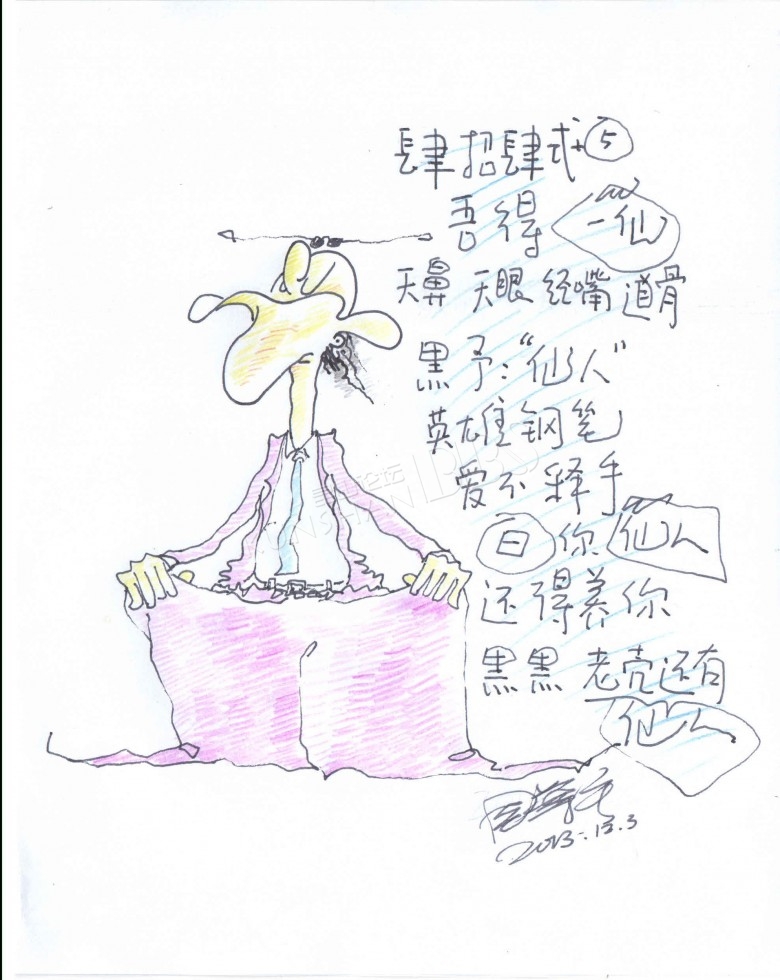 肆招肆式+⑤
吾得 一仙
天鼻 天眼 经嘴 道骨
黑予：“仙人”
英雄钢笔
爱不释手
白你仙人
还得养你
黑黑 老壳还有
仙人
2013.12.3